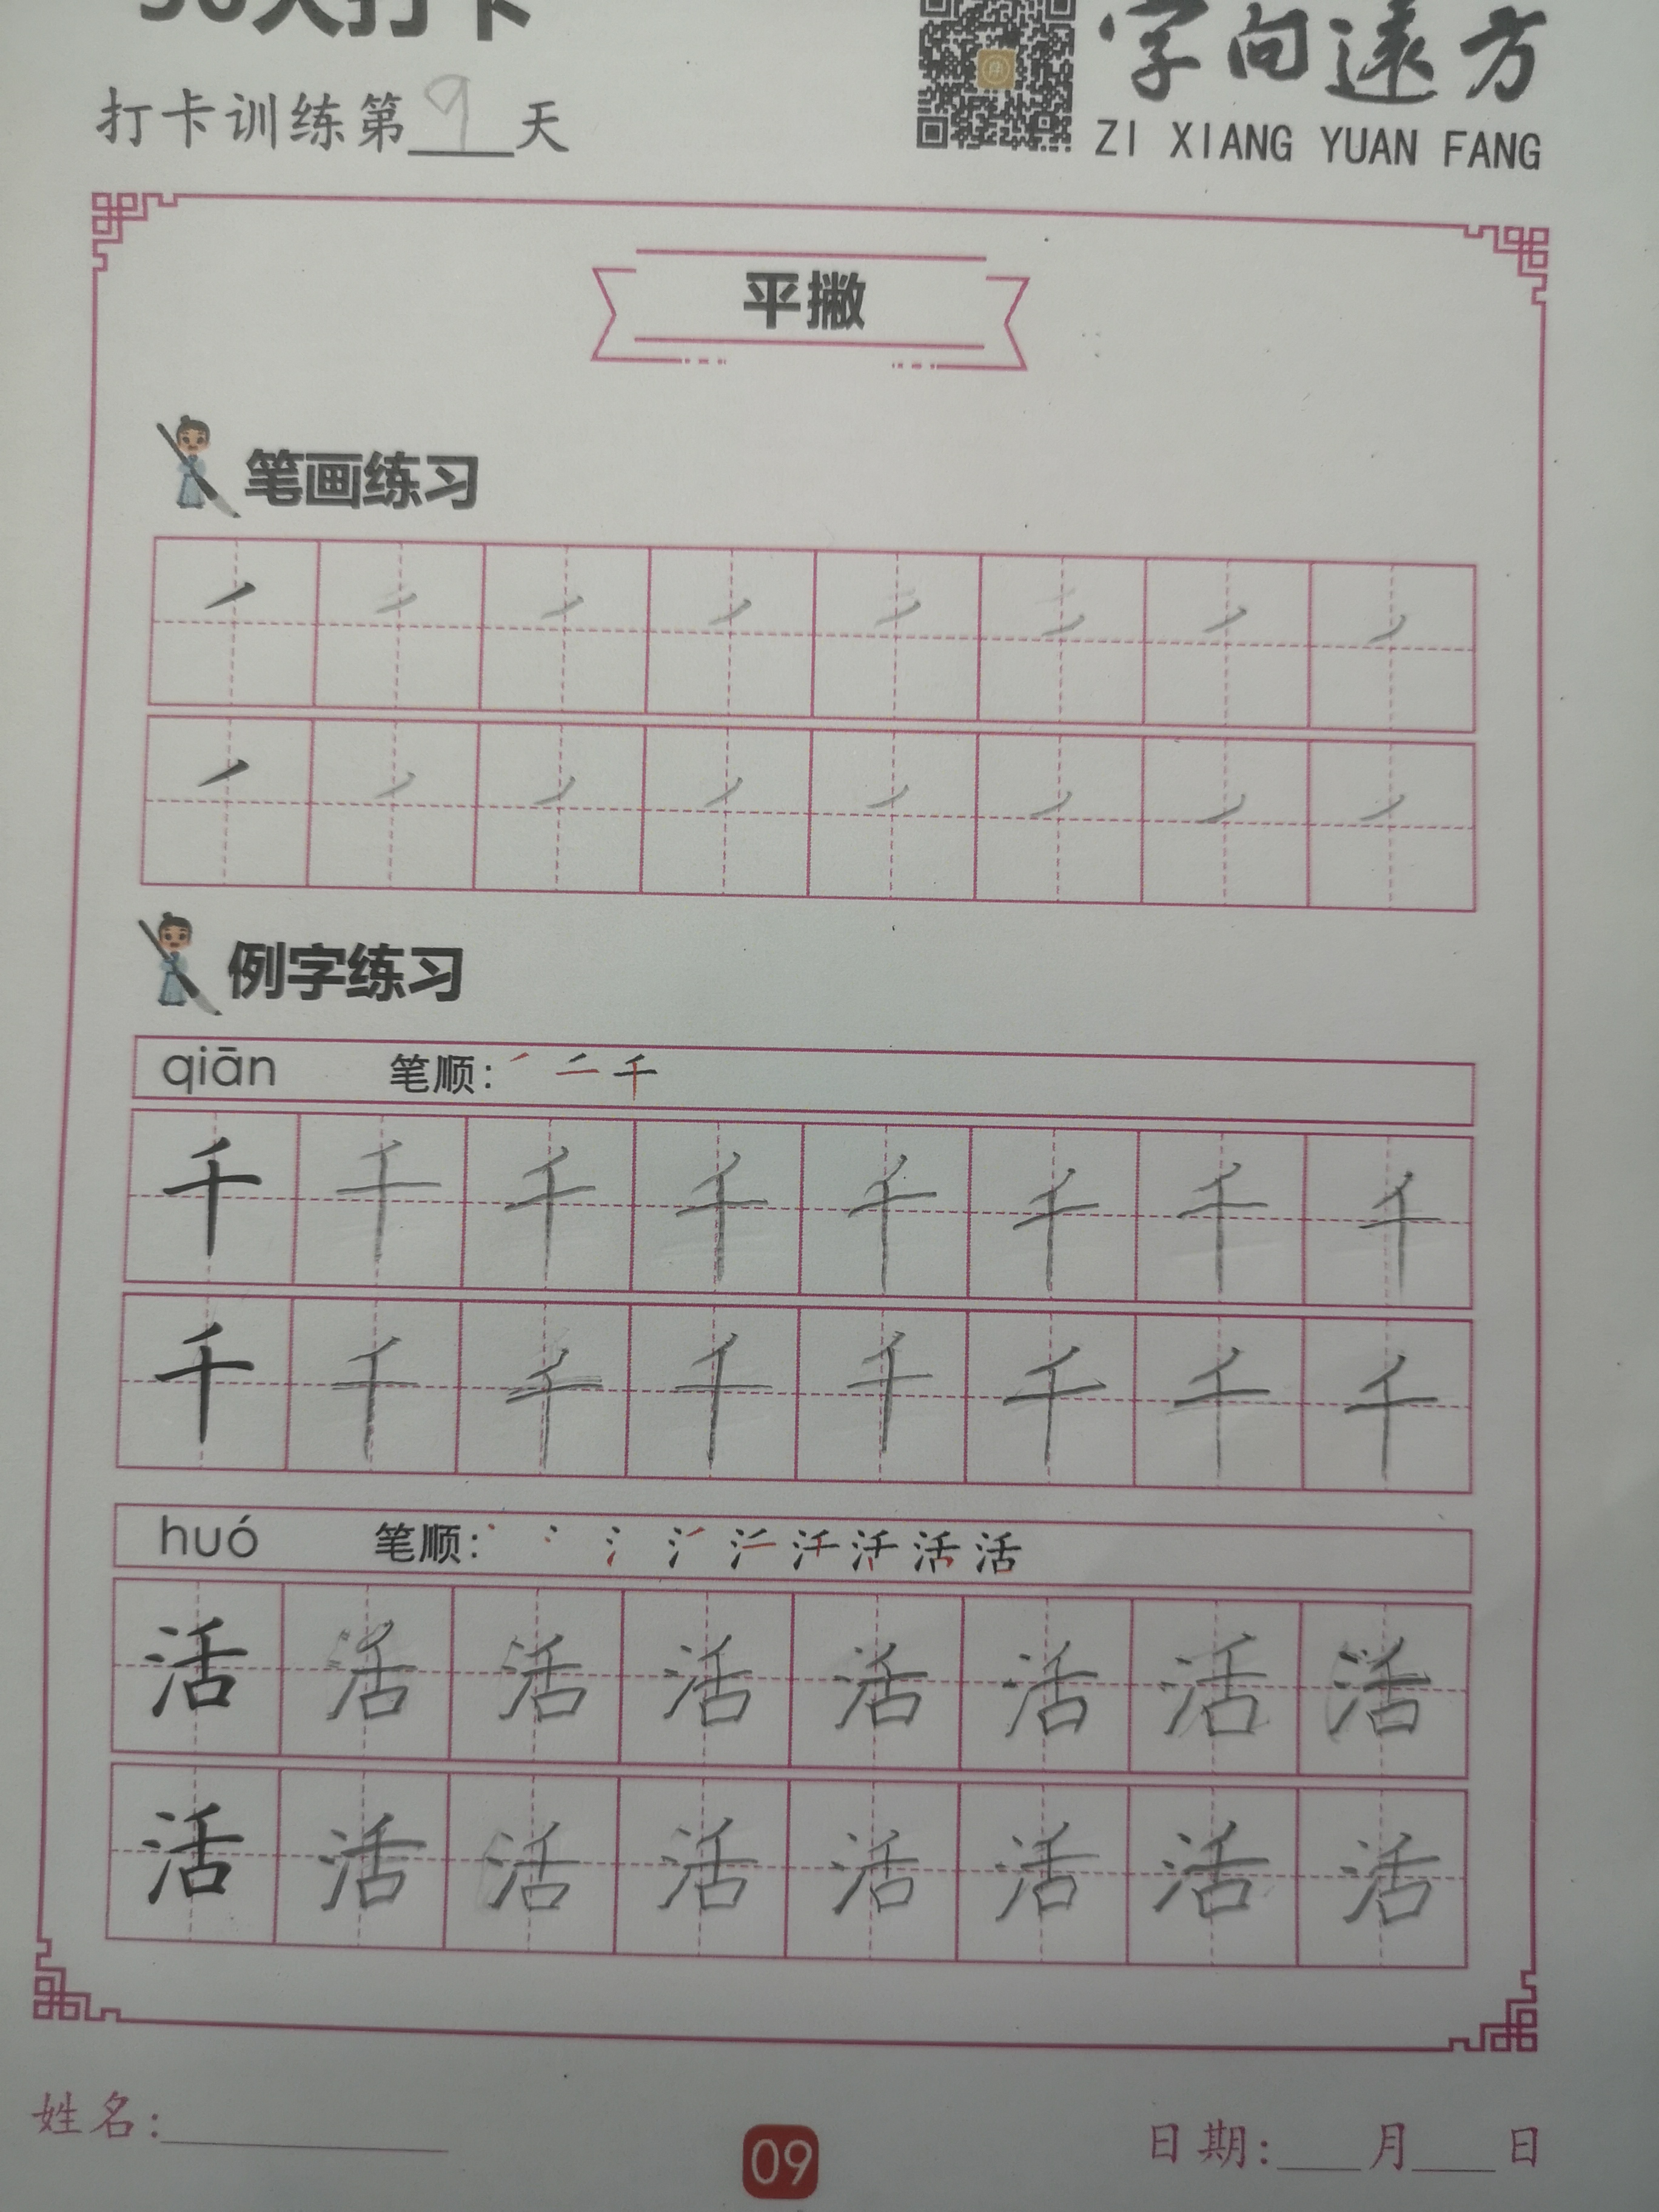 打卡训练第9天
字向遠方
ZI XIANG YUAN FANG
平撇
笔画练习
例字练习
qiān 笔顺: 丿 二 千
千 千 千 千 千 千 千 千
千 千 千 千 千 千 千 千
huó 笔顺: 活
活 活 活 活 活 活 活 活
活 活 活 活 活 活 活 活
姓名:
09
日期: 月 日